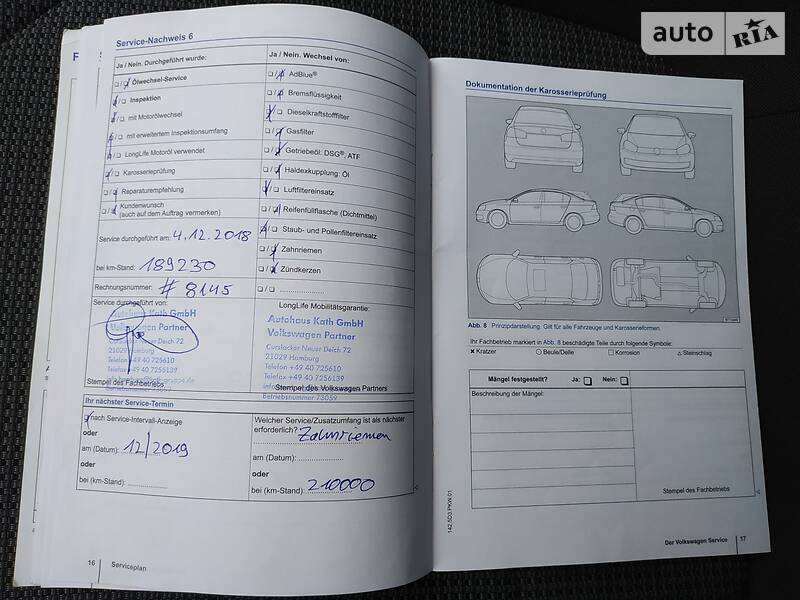 auto RIA
Service-Nachweis 6
Ja / Nein. Durchgeführt wurde:
Ölwechsel-Service
Inspektion
mit Motorölwechsel
mit erweitertem Inspektionsumfang
LongLife Motoröl verwendet
Karosserieprüfung
Reparaturempfehlung
Kundenwunsch
(auch auf dem Auftrag vermerken)
Ja / Nein. Wechsel von:
AdBlue®
Bremsflüssigkeit
Dieselkraftstofffilter
Gasfilter
Getriebeöl: DSG®, ATF
Haldexkupplung: Öl
Luftfiltereinsatz
Reifenfüllflasche (Dichtmittel)
Staub- und Pollenfiltereinsatz
Zahnriemen
Zündkerzen
Service durchgeführt am: 4.12.2018
bei km-Stand: 189230
Rechnungsnummer: # 8145
Service durchgeführt von:
Autohaus Kath GmbH
Volkswagen Partner
Curslacker Neuer Deich 72
21029 Hamburg
Telefon +49 40 725610
Telefax +49 40 7256139
Stempel des Fachbetriebs
LongLife Mobilitätsgarantie:
Autohaus Kath GmbH
Volkswagen Partner
Curslacker Neuer Deich 72
21029 Hamburg
Telefon +49 40 725610
Telefax +49 40 7256139
Stempel des Volkswagen Partners
Betriebsnummer 73059
Ihr nächster Service-Termin
nach Service-Intervall-Anzeige
oder
am (Datum): 12/2019
oder
bei (km-Stand):
Welcher Service/Zusatzumfang ist als nächster
erforderlich? Zahnriemen
am (Datum):
oder
bei (km-Stand): 210000
16 Serviceplan
Dokumentation der Karosserieprüfung
Abb. 8 Prinzipdarstellung. Gilt für alle Fahrzeuge und Karosserieformen.
Ihr Fachbetrieb markiert in Abb. 8 beschädigte Teile durch folgende Symbole:
Kratzer Beule/Delle Korrosion Steinschlag
Mängel festgestellt? Ja: Nein:
Beschreibung der Mängel:
Stempel des Fachbetriebs
142.5D3.PKW.01
Der Volkswagen Service 17